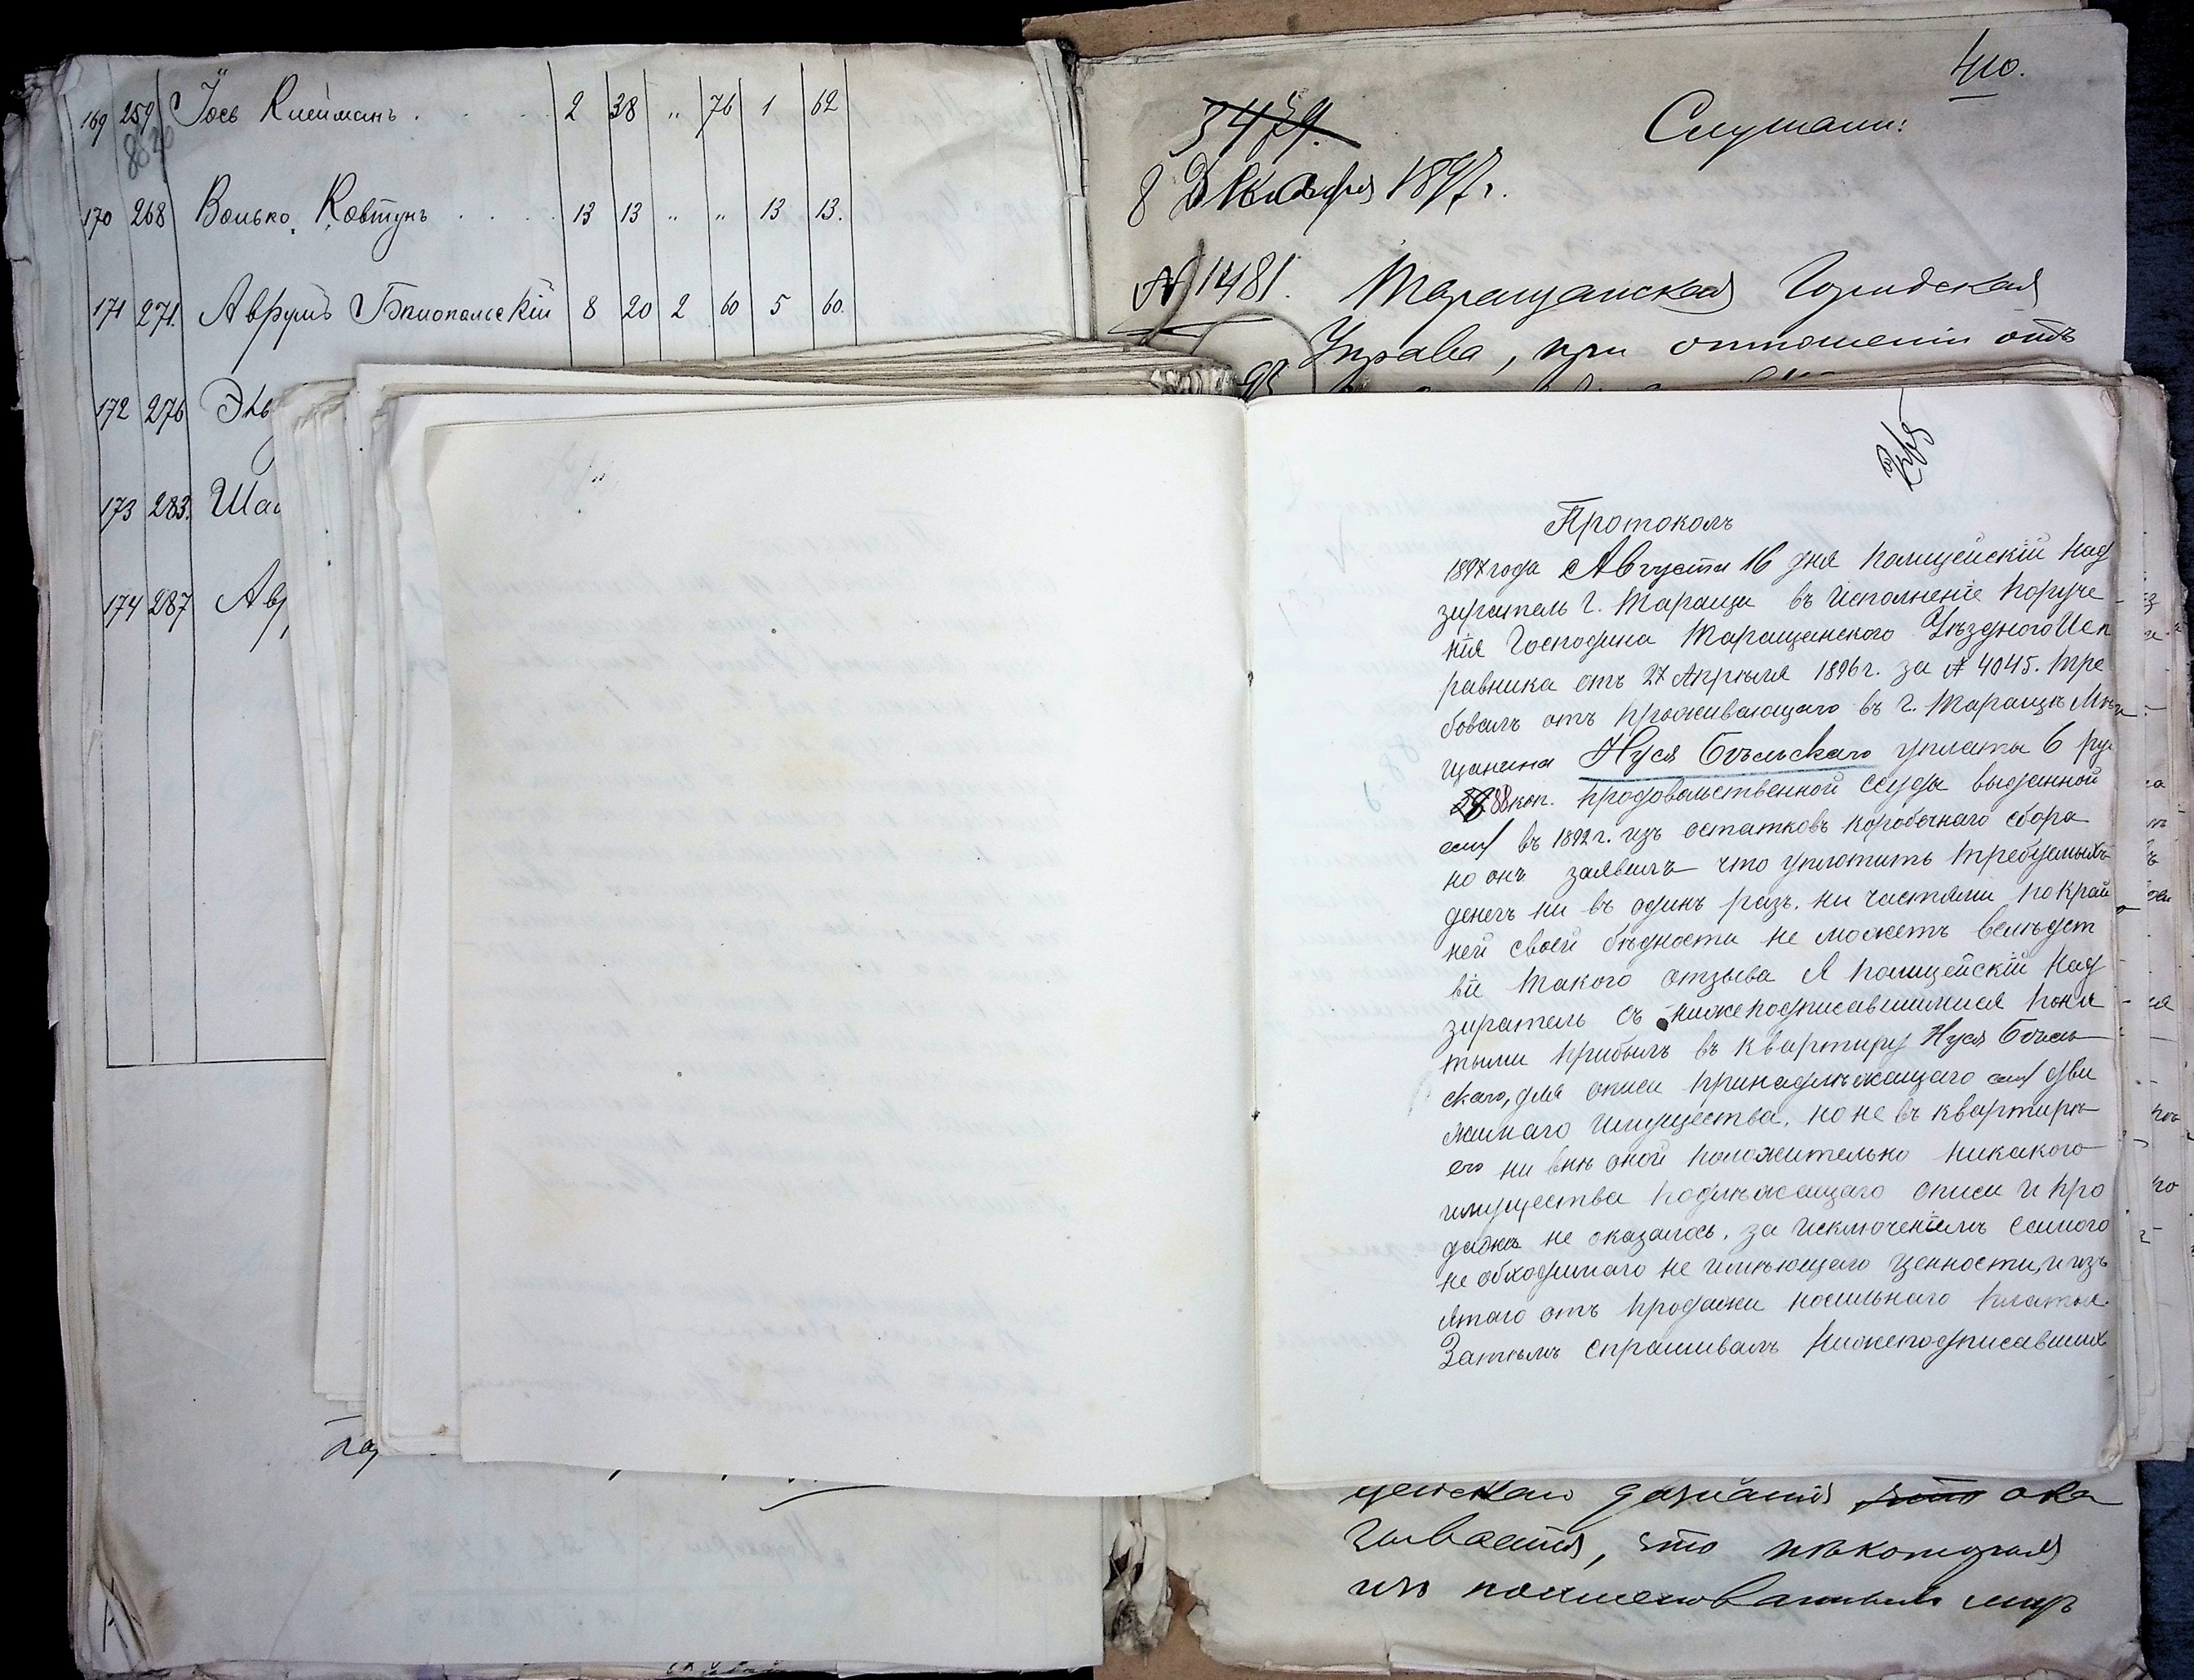 169 259 Іось Клейманъ . . . . 2 38 „ 76 1 62
170 268 Волько Ковтунъ . . . . 13 13 „ „ 13 13.
171 271. Аврумъ Бялопольскій 8 20 2 60 5 60.
172 276
173 283.
174 287
410.
3479.
Слушали:
8 Декабря 1897 г.
№ 14181. Таращанская Городская
Управа, при отношеніи отъ
Протоколъ
1897 года Августа 16 дня полицейскій над
зиратель г. Таращи въ исполненіе поруче
нія Господина Таращанскаго Уѣзднаго Исп
равника отъ 27 Апрѣля 1896 г. за № 4045. тре
бовалъ отъ проживающаго въ г. Таращѣ Мѣ
щанина Нуся Бѣльскаго уплаты 6 ру
88 коп. продовольственной ссуды выданной
ему въ 1892 г. изъ остатковъ коробочнаго сбора
но онъ заявилъ что уплатить требуемыхъ
денегъ ни въ одинъ разъ. ни частями по край
ней своей бѣдности не можетъ вслѣдст
віи такого отзыва Я полицейскій над
зиратель съ нижеподписавшимися поня
тыми прибылъ въ квартиру Нуся Бѣль
скаго, для описи принадлѣжащаго ему дви
жимаго имущества, но не въ квартирѣ
его ни внѣ оной положительно никакого
имущества подлѣжащаго описи и про
дажѣ не оказалось, за исключеніемъ самого
не обходимаго не имѣющаго ценности, и изъ
ятаго отъ продажи носильнаго платья.
Затѣмъ спрашивалъ нижеподписавших
цейскаго дознанія что ока
зывается, что нѣкоторыя
изъ поименованныхъ лицъ